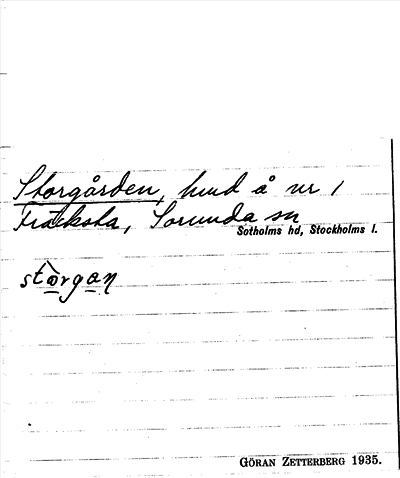 Storgården, hmd å nr 1
Fräcksta, Sorunda sn
Sotholms hd, Stockholms l.
stòrgan
GÖRAN ZETTERBERG 1935.